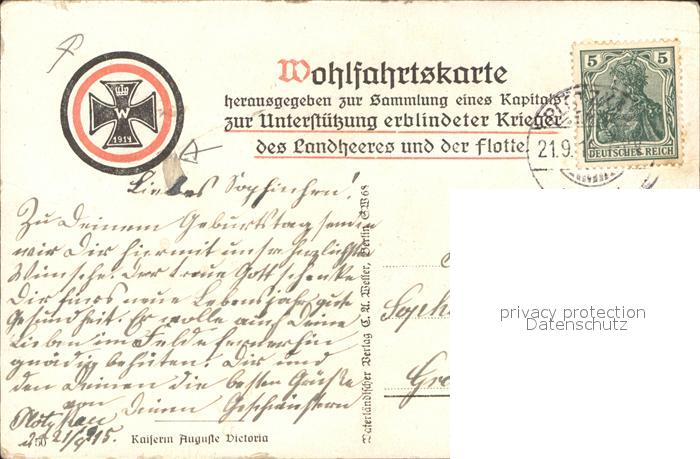 Wohlfahrtskarte
herausgegeben zur Sammlung eines Kapitals
zur Unterstützung erblindeter Krieger
des Landheeres und der Flotte
W
1914
5 5
DEUTSCHES REICH
21.9.
Liebes Sophinchen!
Zu Deinem Geburtstag senden
wir Dir hiermit unsre herzlichste
Wünsche. Der treue Gott schenke
Dir fürs neue Lebensjahr gute
Gesundheit. Er wolle auch Deine
Lieben im Felde fernerhin
gnädig behüten. Dir und
den Deinen die besten Grüße
von Deinen Geschwistern
21/9 15.
250 Kaiserin Auguste Victoria
Vaterländischer Verlag C. A. Weller, Berlin SW 68
Soph
Gr
privacy protection
Datenschutz